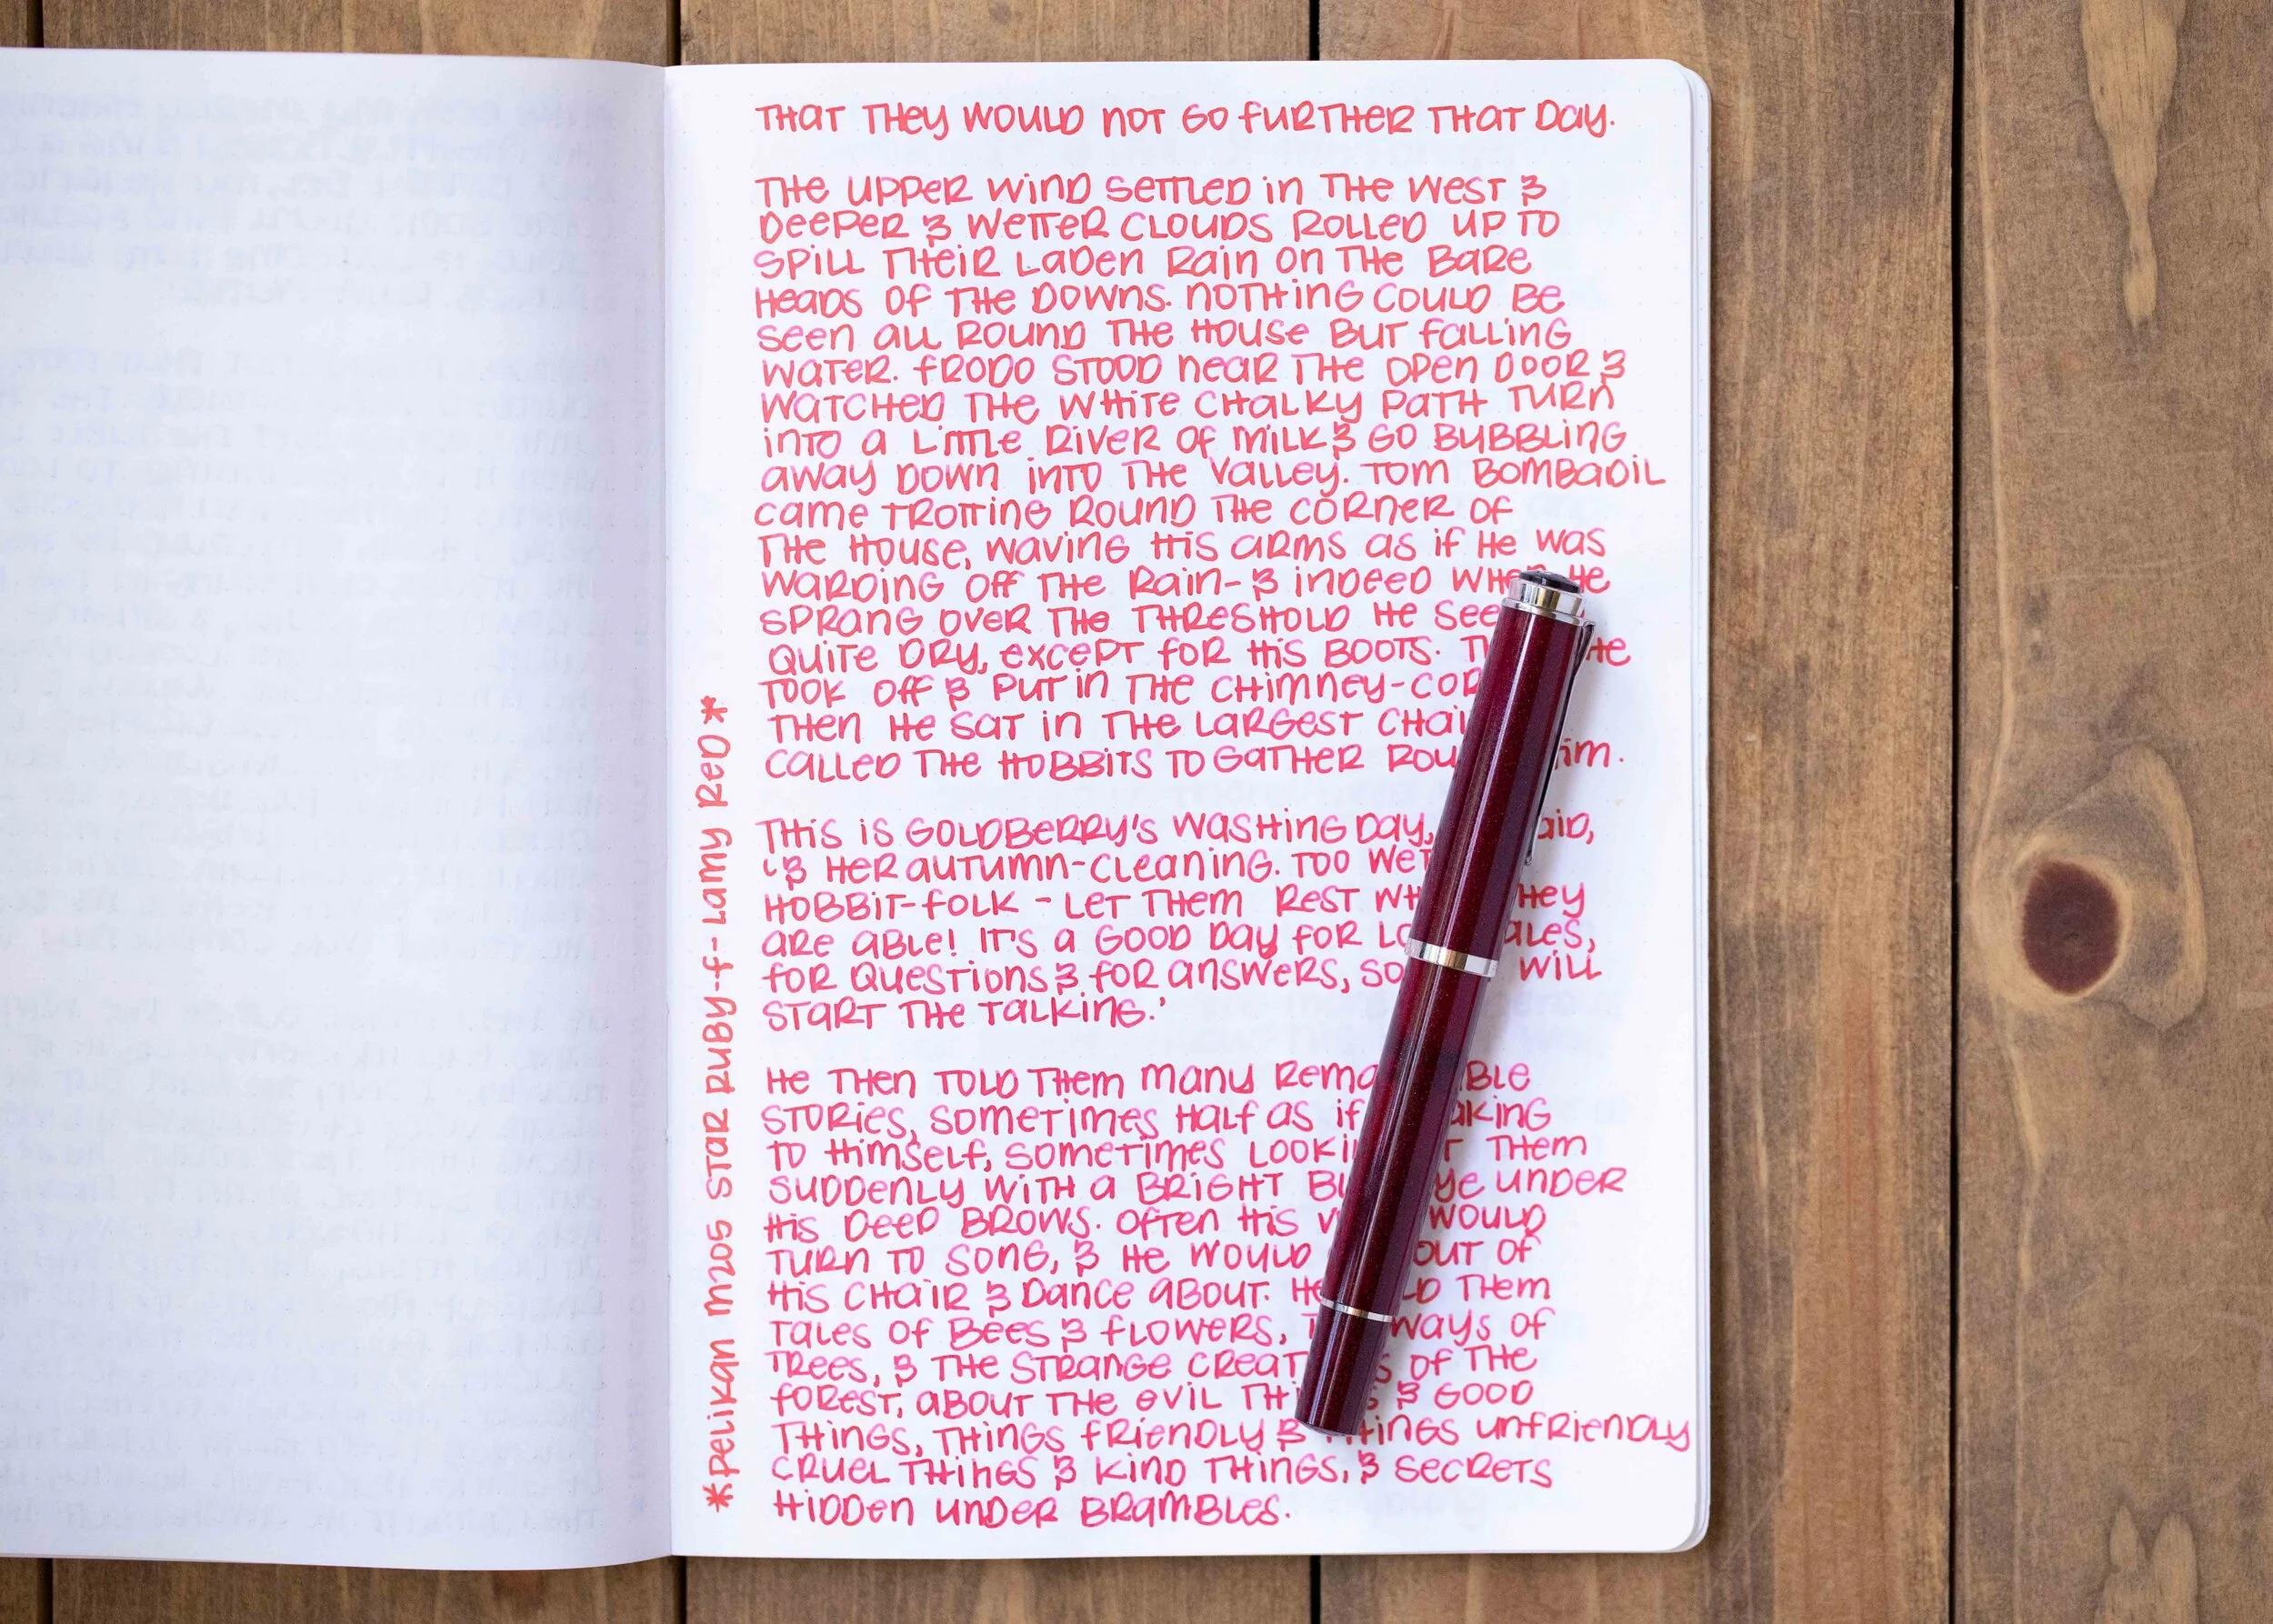 THAT THEY WOULD NOT GO FURTHER THAT DAY.
THE UPPER WIND SETTLED IN THE WEST &
DEEPER & WETTER CLOUDS ROLLED UP TO
SPILL THEIR LADEN RAIN ON THE BARE
HEADS OF THE DOWNS. NOTHING COULD BE
SEEN ALL ROUND THE HOUSE BUT FALLING
WATER. FRODO STOOD NEAR THE OPEN DOOR &
WATCHED THE WHITE CHALKY PATH TURN
INTO A LITTLE RIVER OF MILK & GO BUBBLING
AWAY DOWN INTO THE VALLEY. TOM BOMBADIL
CAME TROTTING ROUND THE CORNER OF
THE HOUSE, WAVING HIS ARMS AS IF HE WAS
WARDING OFF THE RAIN- & INDEED WHEN HE
SPRANG OVER THE THRESHOLD HE SEE
QUITE DRY, EXCEPT FOR HIS BOOTS. T HE
TOOK OFF & PUT IN THE CHIMNEY-COR
THEN HE SAT IN THE LARGEST CHAI
CALLED THE HOBBITS TO GATHER ROU IM.
THIS IS GOLDBERRY'S WASHING DAY, AID,
'& HER AUTUMN-CLEANING. TOO WET
HOBBIT-FOLK - LET THEM REST WH HEY
ARE ABLE! IT'S A GOOD DAY FOR LO ALES,
FOR QUESTIONS & FOR ANSWERS, SO WILL
START THE TALKING.'
HE THEN TOLD THEM MANY REMA BLE
STORIES, SOMETIMES HALF AS IF AKING
TO HIMSELF, SOMETIMES LOOKI T THEM
SUDDENLY WITH A BRIGHT BL YE UNDER
HIS DEEP BROWS. OFTEN HIS V WOULD
TURN TO SONG, & HE WOULD OUT OF
HIS CHAIR & DANCE ABOUT. HE LD THEM
TALES OF BEES & FLOWERS, T WAYS OF
TREES, & THE STRANGE CREAT S OF THE
FOREST, ABOUT THE EVIL THI S & GOOD
THINGS, THINGS FRIENDLY & THINGS UNFRIENDLY
CRUEL THINGS & KIND THINGS, & SECRETS
HIDDEN UNDER BRAMBLES.
*PELIKAN M205 STAR RUBY-F-LAMY RED*